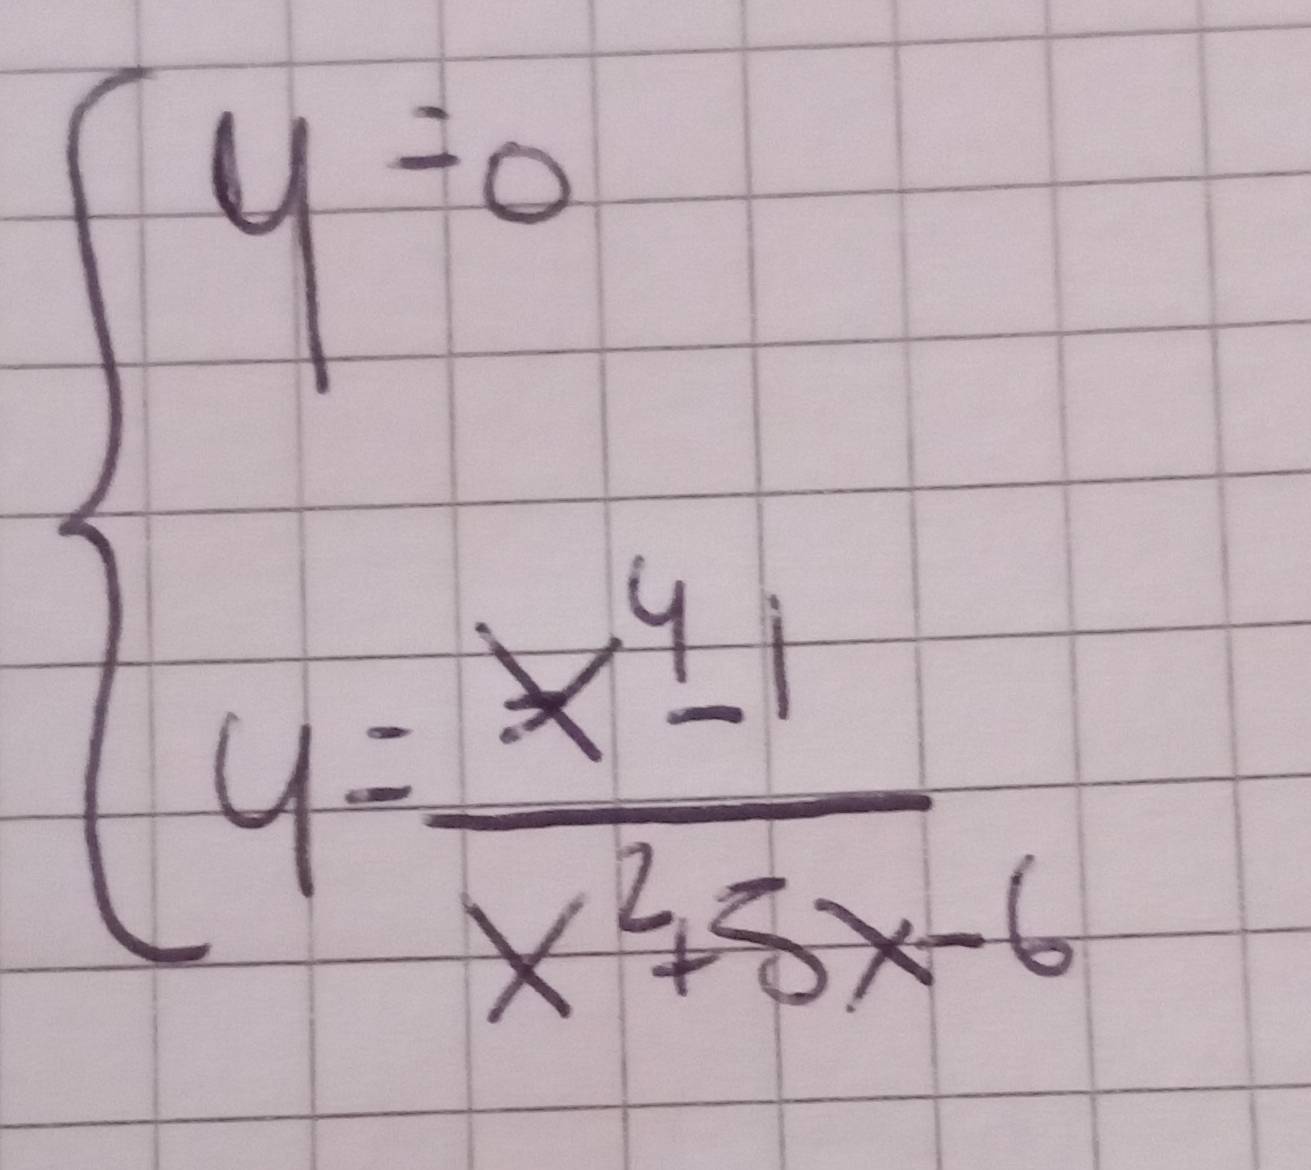 y = 0
y = \frac{x^4 - 1}{x^2 + 5x - 6}